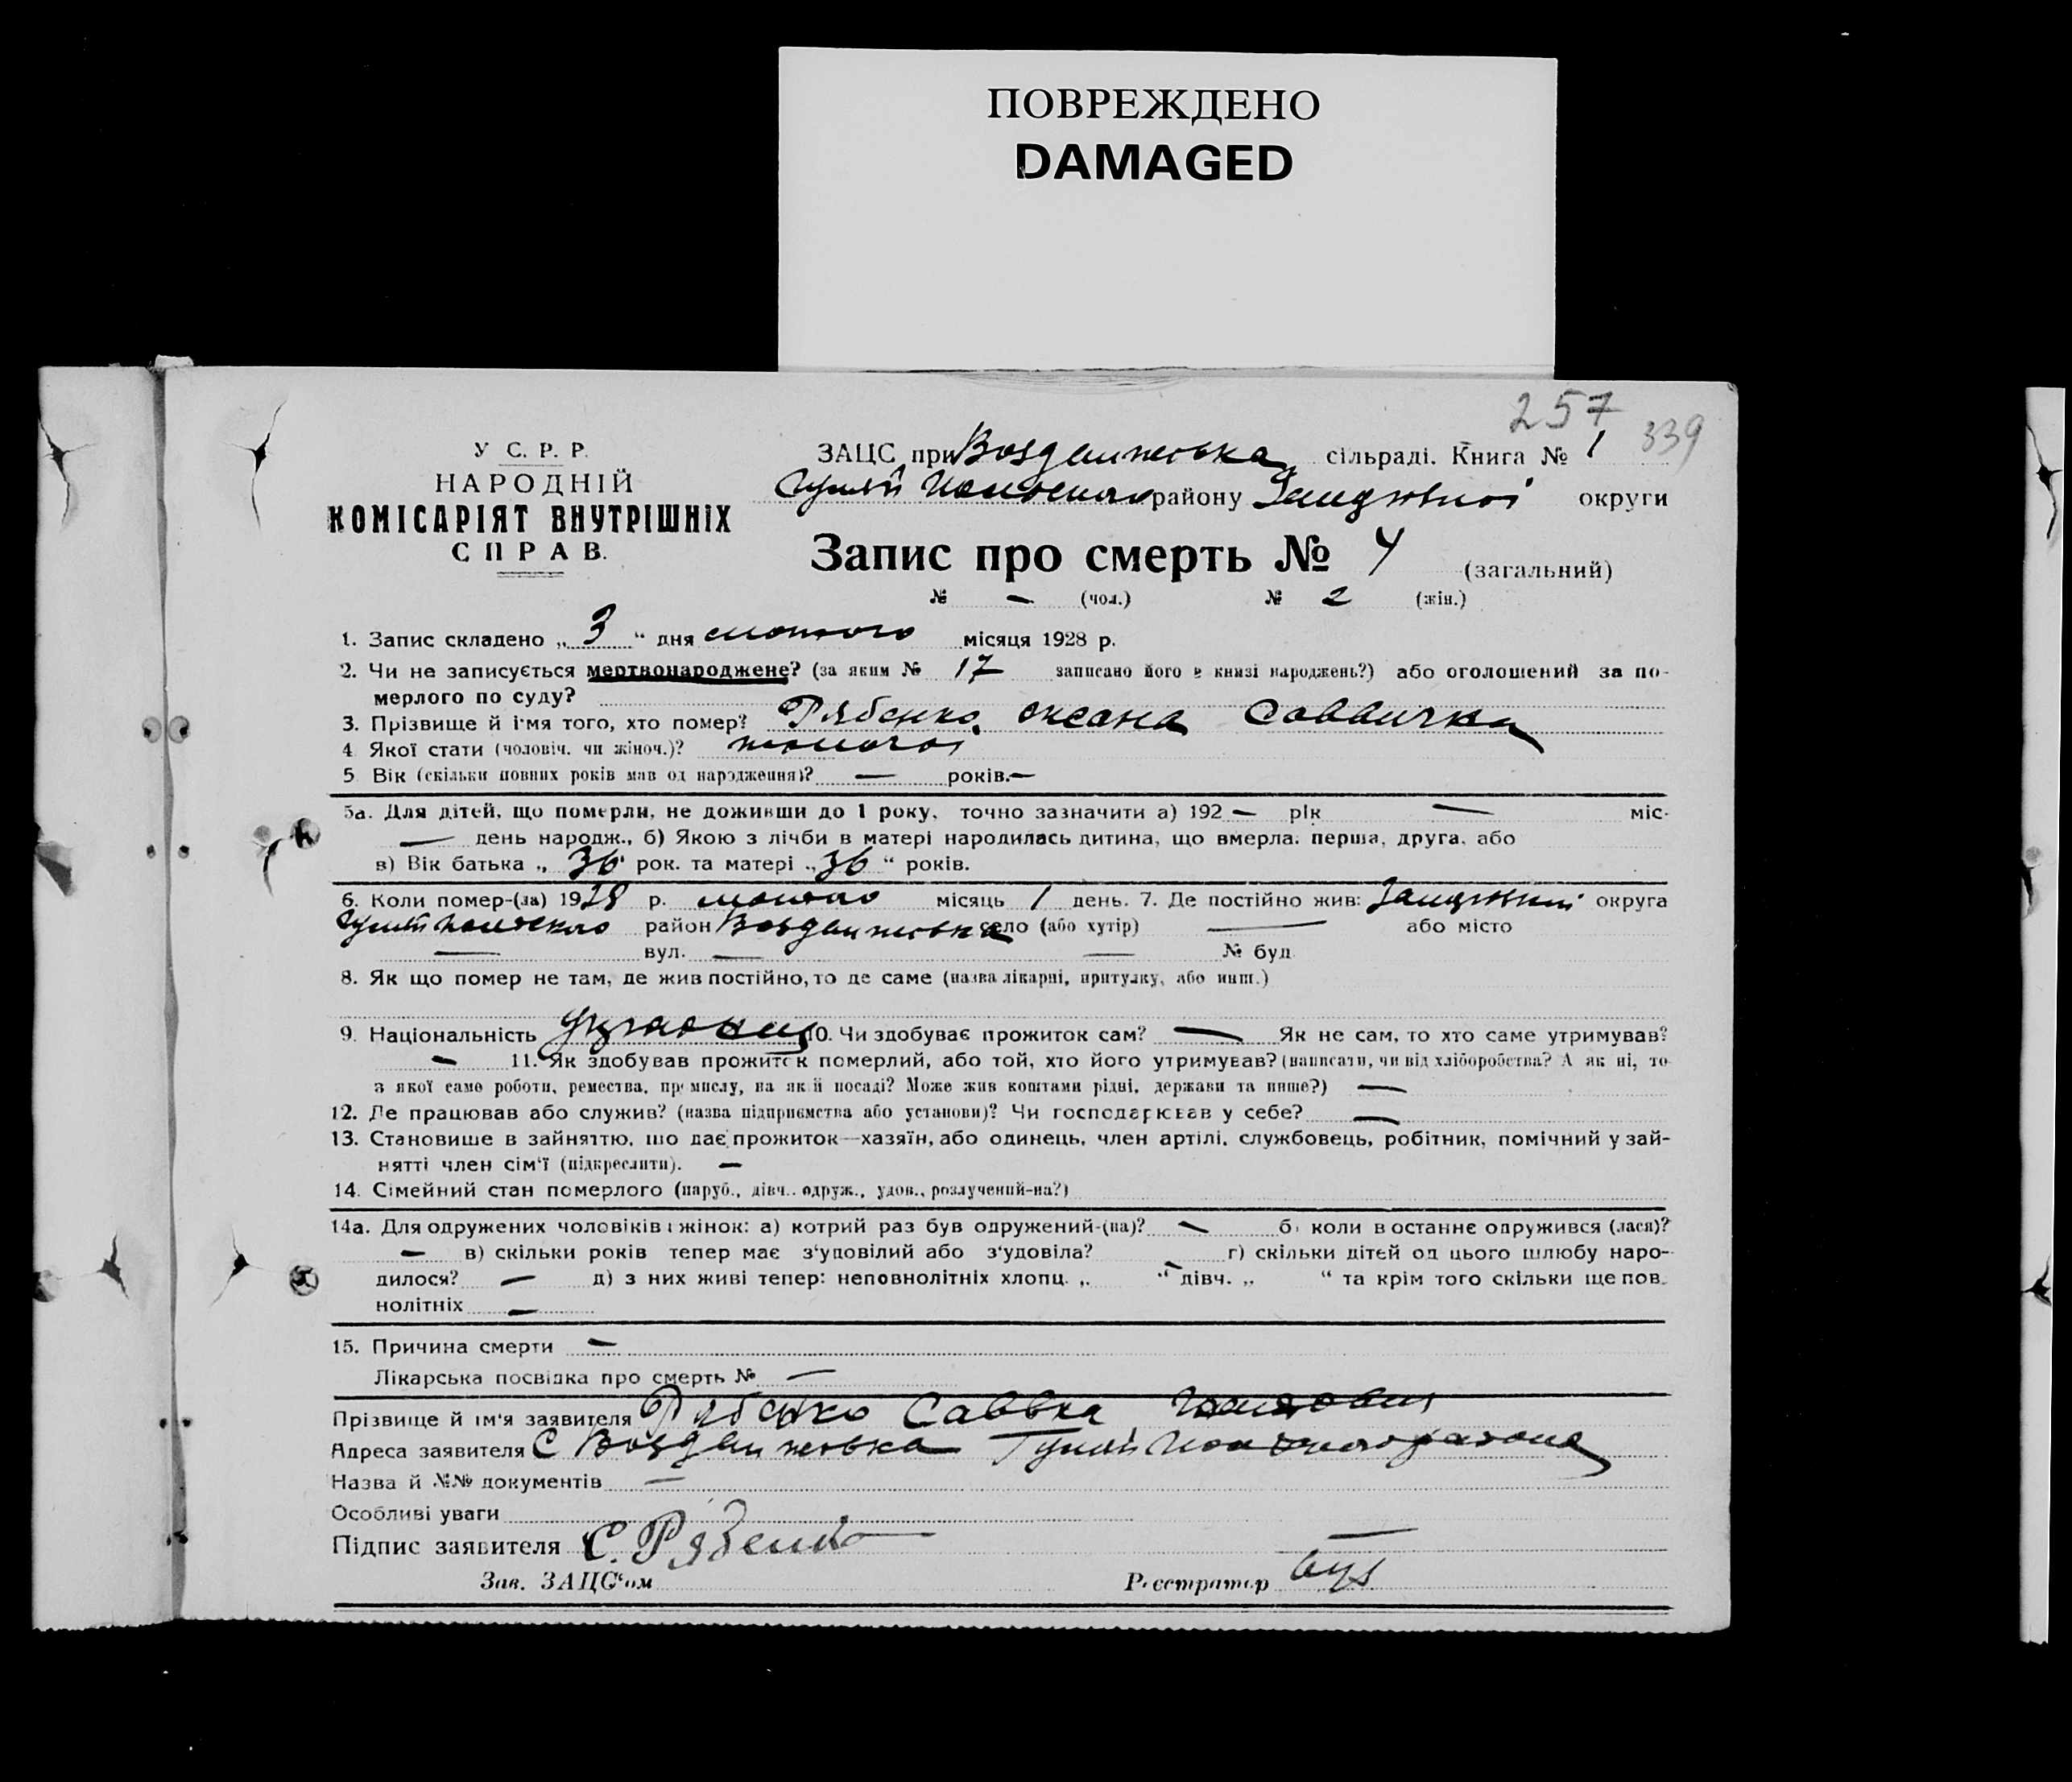 ПОВРЕЖДЕНО
DAMAGED
257
339
У С. Р. Р.
НАРОДНІЙ
КОМІСАРІЯТ ВНУТРІШНІХ
СПРАВ.
ЗАЦС при Воздвижевка сільраді. Книга № 1
Гуляй Польского району Запорізької округи
Запис про смерть № 4 (загальний)
№ — (чол.) № 2 (жін.)
1. Запис складено „ 3 “ дня лютого місяця 1928 р.
2. Чи не записується мертвонароджене? (за яким № 17 записано його в книзі народжень?) або оголошений за по-
мерлого по суду?
3. Прізвище й ім'я того, хто помер? Рябенко Оксана Саввична
4 Якої стати (чоловіч. чи жіноч.)? жіночої
5 Вік (скільки повних років мав од народження)? — років. —
5а. Для дітей, що померли, не доживши до 1 року, точно зазначити а) 192 — рік — міс-
— день народж., б) Якою з лічби в матері народилась дитина, що вмерла: перша, друга, або
в) Вік батька „ 36 рок. та матері „ 36 “ років.
6. Коли помер-(ла) 1928 р. лютого місяць 1 день. 7. Де постійно жив: округа
Гуляй польского район Воздвижевка село (або хутір) — або місто
— вул. — — № буд
8. Як що помер не там, де жив постійно, то де саме (назва лікарні, притулку, або инш.)
9. Національність 10. Чи здобуває прожиток сам? — Як не сам, то хто саме утримував?
— 11. Як здобував прожиток померлий, або той, хто його утримував? (написати, чи від хліборобства? А як ні, то
з якої саме роботи, ремества, промислу, на якій посаді? Може жив коштами рідні, держави та инше?) —
12. Де працював або служив? (назва підприємства або установи)? Чи господарював у себе? —
13. Становище в зайняттю, що дає прожиток—хазяїн, або одинець, член артілі, службовець, робітник, помічний у зай-
нятті член сім'ї (підкреслити). —
14. Сімейний стан померлого (паруб., дівч.. одруж., удов., розлучений-на?)
14а. Для одружених чоловіків і жінок: а) котрий раз був одружений-(на)? — б) коли в останнє одружився (лася)?
— в) скільки років тепер має з'удовілий або з'удовіла? г) скільки дітей од цього шлюбу наро-
дилося? — д) з них живі тепер: неповнолітніх хлопц. „ — “ дівч. „ “ та крім того скільки ще пов.
нолітніх —
15. Причина смерти —
Лікарська посвідка про смерть № —
Прізвище й ім'я заявителя Рябенко Савва
Адреса заявителя С Воздвижевка Гуляй Польского района
Назва й №№ документів —
Особливі уваги
Підпис заявителя С. Рябенко —
Зав. ЗАЦС'ом Реєстратор